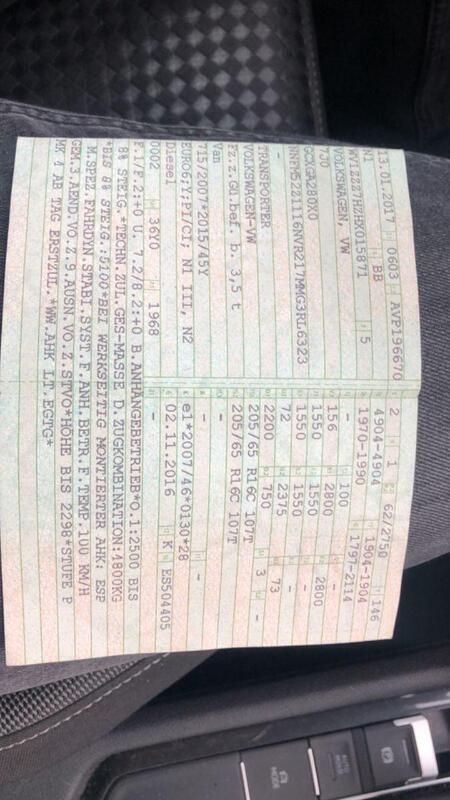 13.01.2017 0603 AVP196670
N1 BB 5
WV1ZZZ7HZHX015871
VOLKSWAGEN, VW
7J0
GCXGA280X0
NNFM52281116NVR217MMG3RL6323
-
TRANSPORTER
VOLKSWAGEN-VW
Fz.z.Gü.bef. b. 3,5 t
Van
715/2007*2015/45Y
EURO6;Y;PI/CI; N1 III, N2
Diesel
0002 36Y0 1968
2 1 62/2750 146
4904-4904 1904-1904
1970-1990 1797-2114
- 100 -
156 2800 2800
1550 1550 -
1550 1550 -
72 2375 73
2200 750 3 -
205/65 R16C 107T
205/65 R16C 107T
-
- -
e1*2007/46*0130*28
02.11.2016 K ES504405
-
F.1/F.2:+0 U. 7.2/8.2:+0 B.ANHÄNGEBETRIEB*O.1:2500 BIS
8% STEIG.*TECHN.ZUL.GES-MASSE D.ZUGKOMBINATION:4800KG
*BIS 8% STEIG.:5100*BEI WERKSEITIG MONTIERTER AHK: ESP
M.SPEZ.FAHRDYN.STABI.SYST.F.ANH.BETR.F.TEMP.100 KM/H
GEM.3.ÄEND.VO.Z.9.AUSN.VO.Z.STVO*HÖHE BIS 2298*STUFE P
MK 4 AB TAG ERSTZUL.*WW.AHK LT.EGTG*
MODE